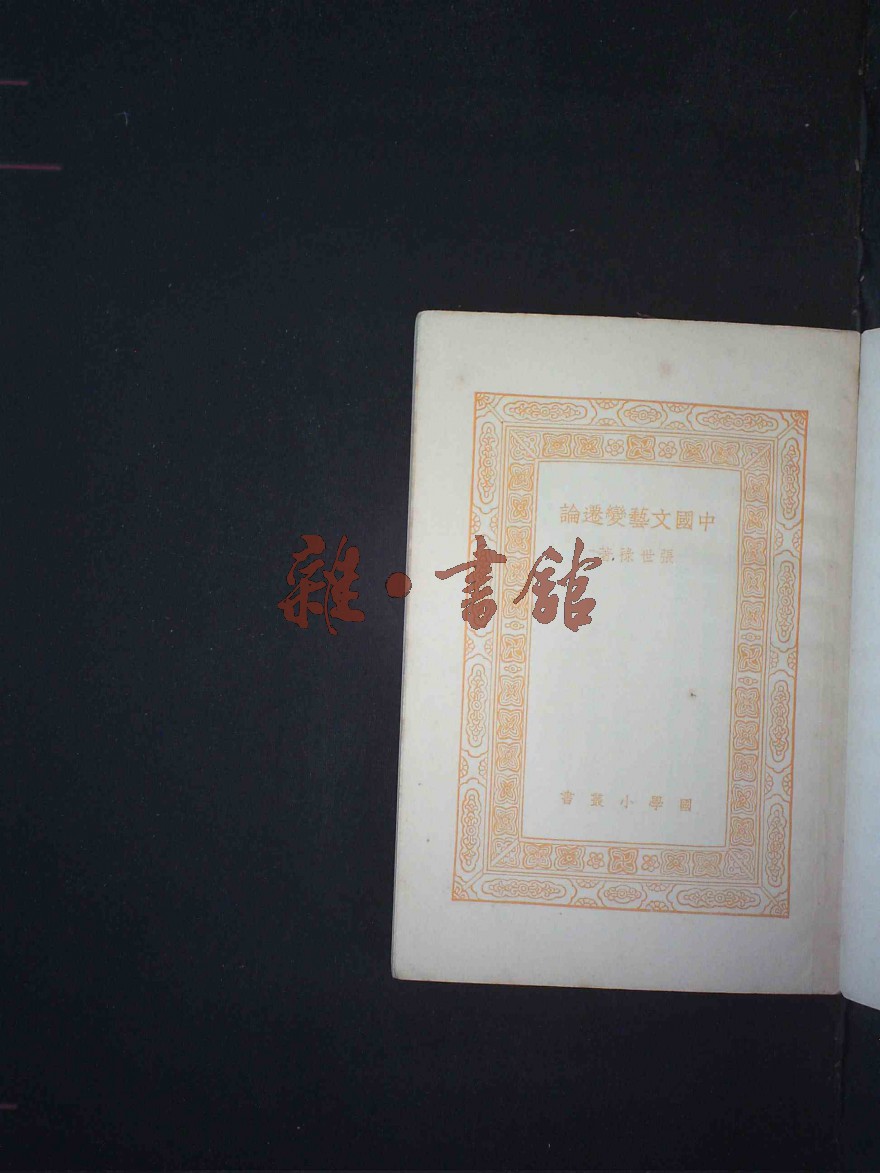 中國文藝變遷論
張世祿著
國學小叢書
雜·書館